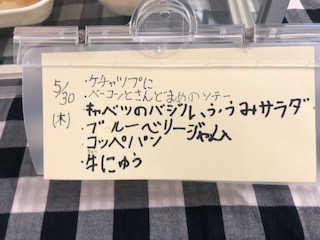 5/30
(木)
・ケチャップに
・ベーコンとさんどまめのソテー
キャベツのバジル、ふうみサラダ
・ブルーベリージャム
コッペパン
・牛にゅう